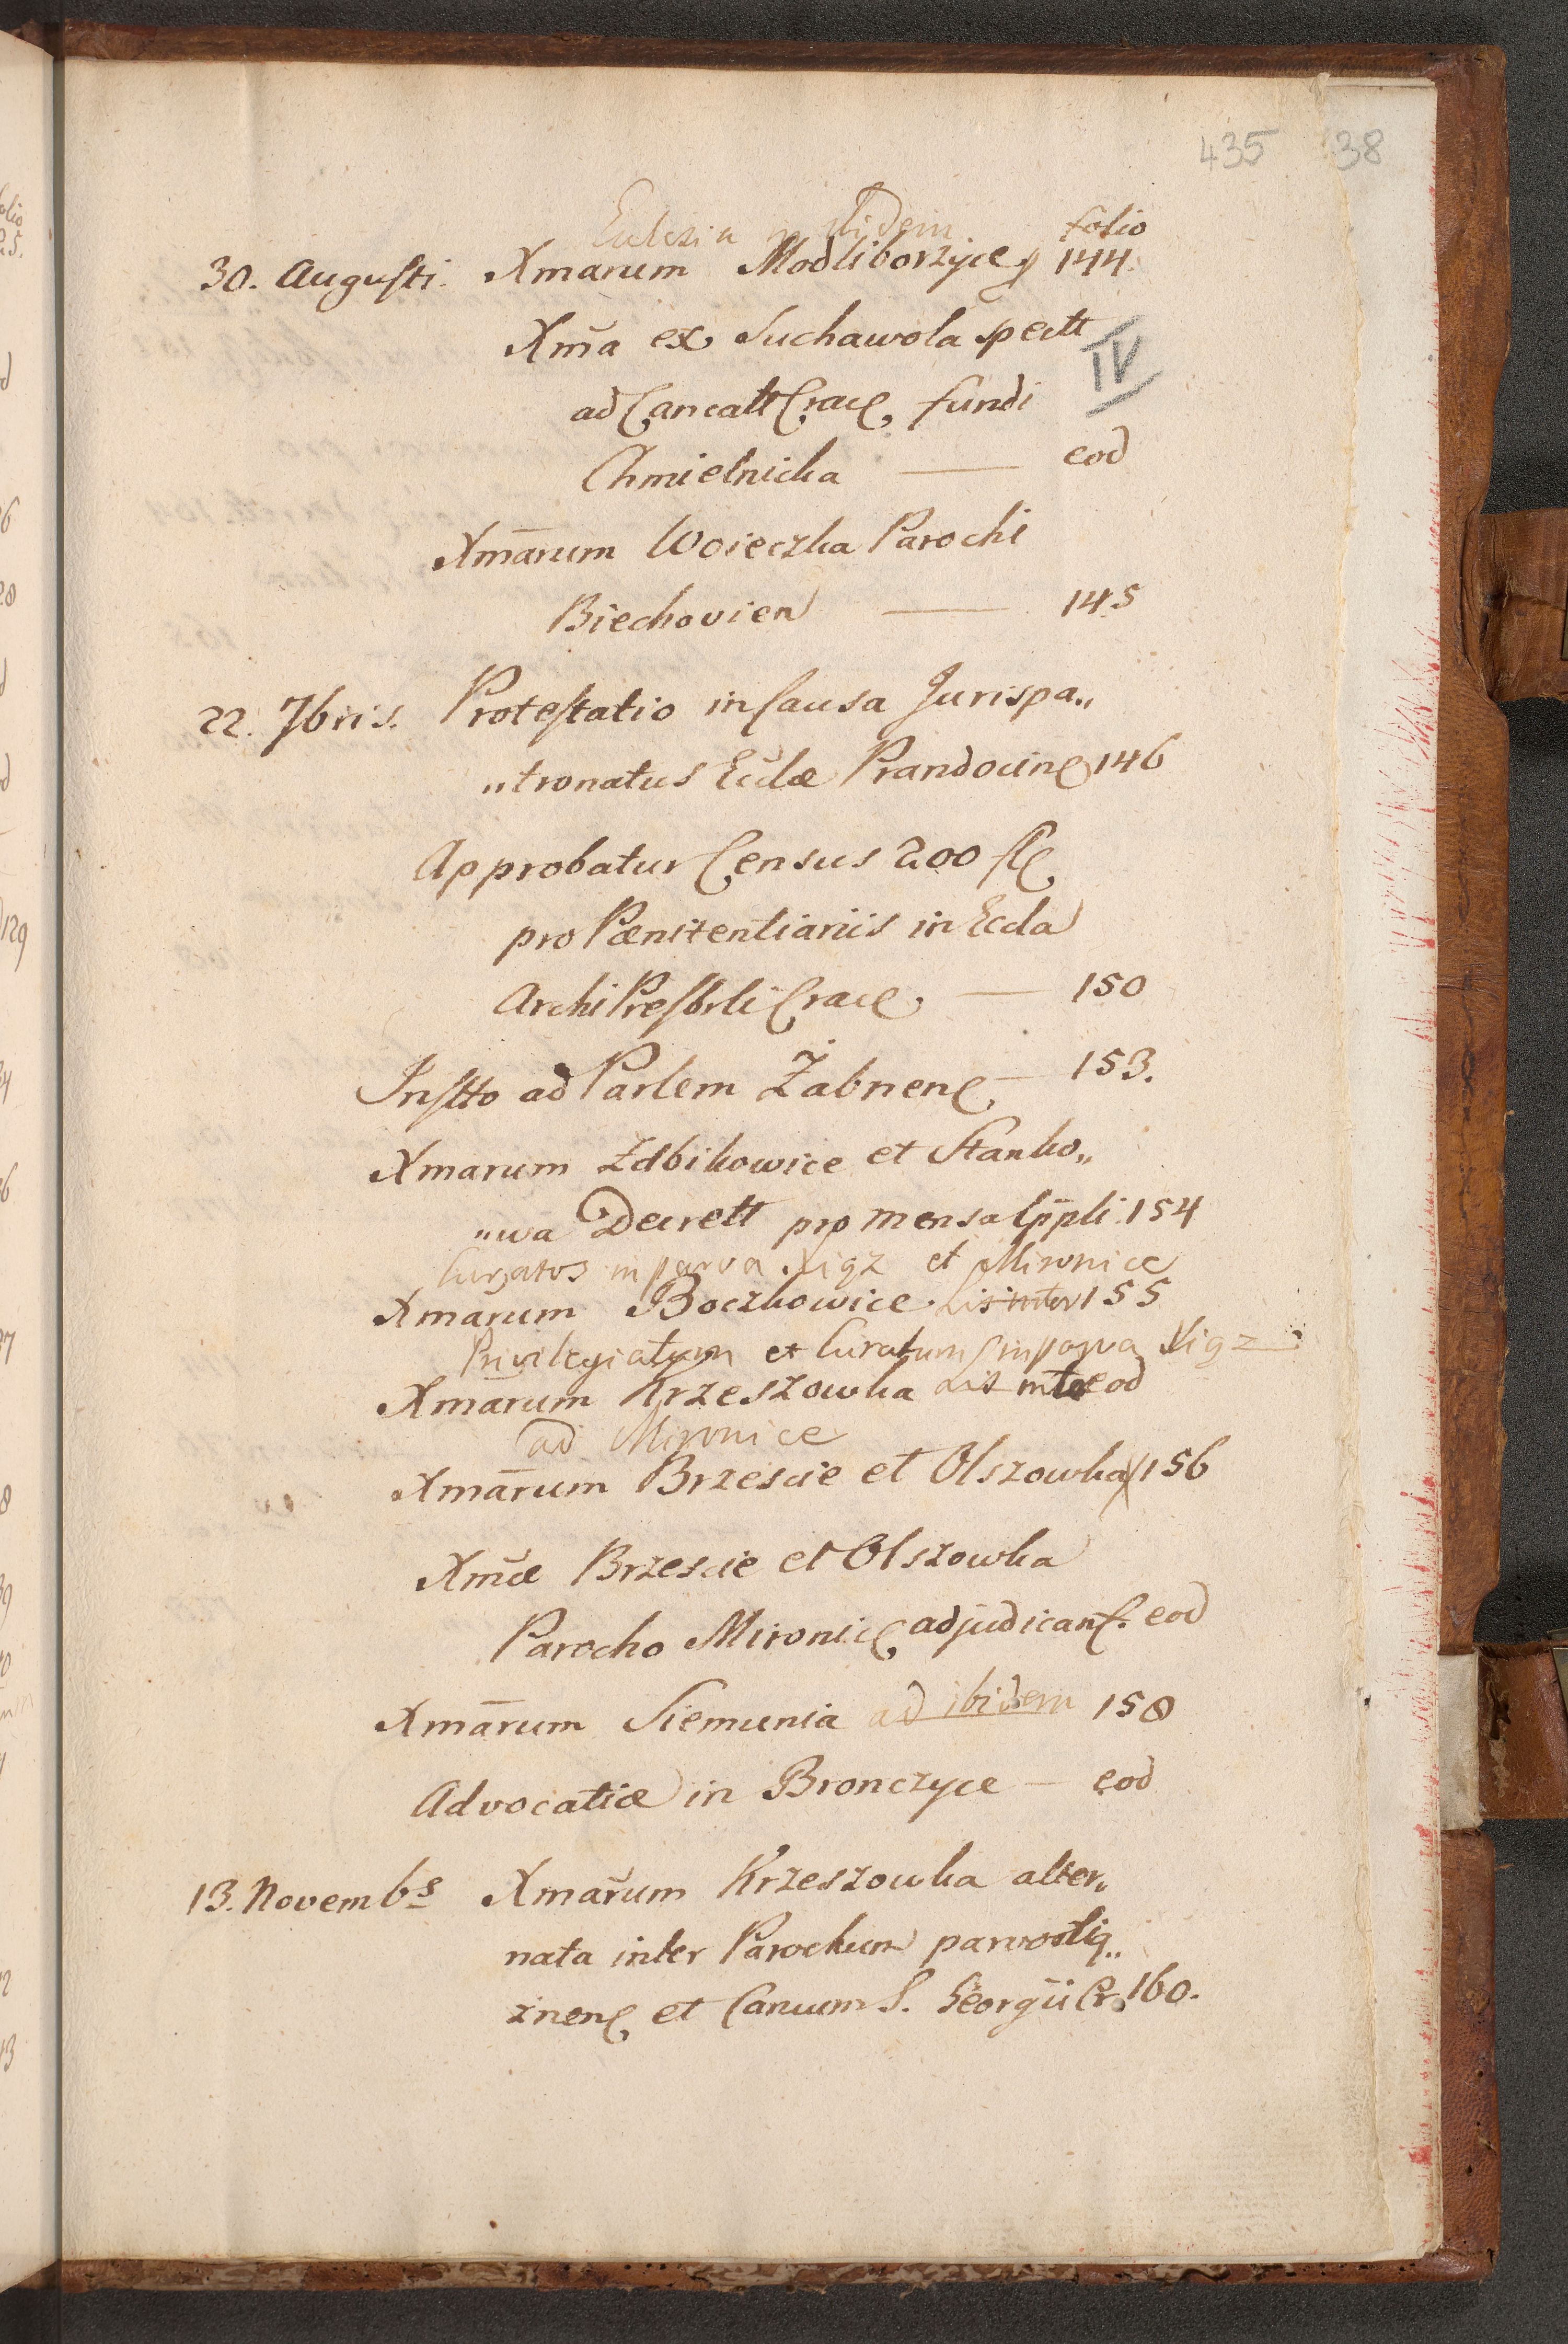 435 38
Ecclesia in ibidem folio
30. Augusti. Xmarum Modliborzyce 144.
Xm̃a ex Suchawola spectt
IV
ad Cancatt Crac, fundi
Chmielnicka — eod
Xmãrum Woieczka Parochi
Biechovien — 145
22. 7bris. Protestatio in Causa Jurispa„
„tronatus Eccłæ Prandocin 146
Approbatur Census 200 fl
pro Pænitentiariis in Eccla
Archi Presbrli Crac, — 150
Instto ad Parlem Żabnen — 153.
Xmarum Zdbikowice et Stanko„
„wa Decrett pro mensa Eppli. 154
Curatos in parva Xigz et Mironice
Xmãrum Boczkowice Lis inter 155
Privilegiatum et Curatum in parva Xigz
Xmãrum Krzeszowka Lis inter eod
ad Mironice
Xmãrum Brzescie et Olszowka 156
Xmæ Brzescie et Olszowka
Parocho Mironic, adjudican. eod
Xmãrum Siemunia ad ibidem 158
Advocatiæ in Bronczyce — eod
13. Novembs Xmarum Krzeszowka alter„
nata inter Parochum parvoxiq„
znen, et Canum S. Georgii Cr. 160.